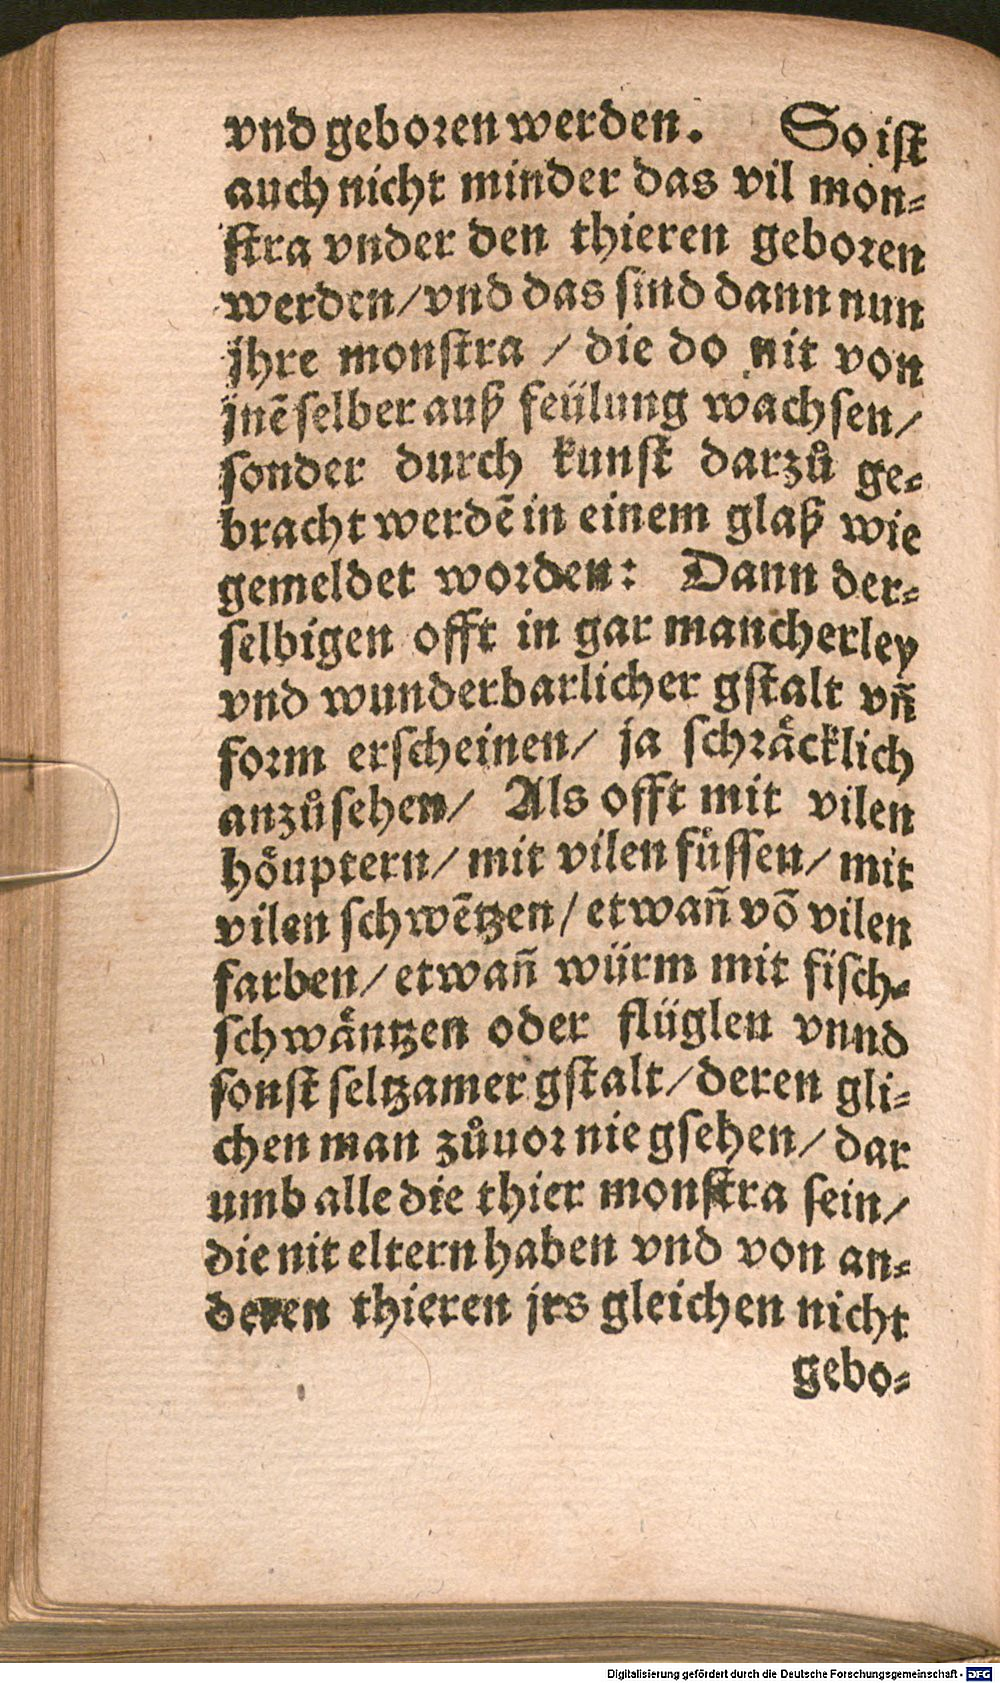 vnd geboren werden. So iſt
auch nicht minder das vil mon⸗
ſtra vnder den thieren geboren
werden/vnd das ſind dann nun
jhre monſtra / die do nit von
jnẽ ſelber auß feülung wachſen/
ſonder durch kunſt darzů ge⸗
bracht werdẽ in einem glaß wie
gemeldet worden: Dann der⸗
ſelbigen offt in gar mancherley
vnd wunderbarlicher gſtalt vñ
form erſcheinen/ ja ſchraͤcklich
anzůſehen/ Als offt mit vilen
hoͤuptern/ mit vilen fuͤſſen/ mit
vilen ſchwẽtzen/ etwañ võ vilen
farben/ etwañ würm mit fiſch⸗
ſchwaͤntzen oder flüglen vnnd
ſonſt ſeltzamer gſtalt/ deren gli⸗
chen man zůuor nie gſehen/ dar
umb alle die thier monſtra ſein/
die nit eltern haben vnd von an⸗
deren thieren jrs gleichen nicht
gebo⸗
Digitalisierung gefördert durch die Deutsche Forschungsgemeinschaft - DFG